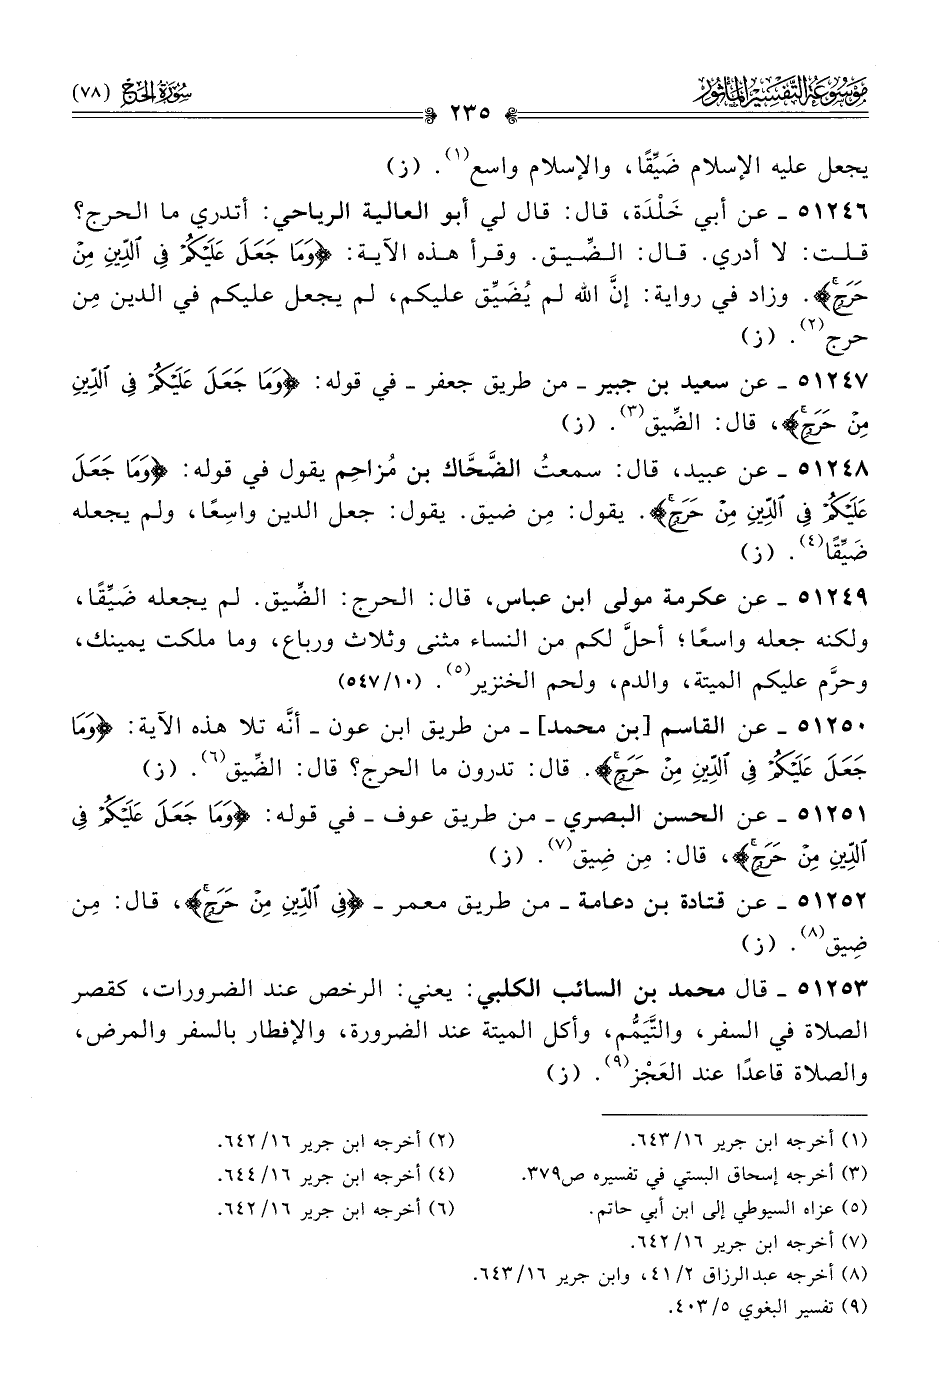 موسوعة التفسير المأثور
سورة الحج (٧٨)
٢٣٥
يجعل عليه الإسلام ضَيِّقًا، والإسلام واسع(١). (ز)
٥١٢٤٦ ـ عن أبي خَلْدَة، قال: قال لي أبو العالية الرياحي: أتدري ما الحرج؟
قلت: لا أدري. قال: الضِّيق. وقرأ هذه الآية: ﴿وَمَا جَعَلَ عَلَيْكُمْ فِي ٱلدِّينِ مِنْ
حَرَجٍۚ﴾. وزاد في رواية: إنَّ الله لم يُضَيِّق عليكم، لم يجعل عليكم في الدين مِن
حرج(٢). (ز)
٥١٢٤٧ ـ عن سعيد بن جبير ـ من طريق جعفر ـ في قوله: ﴿وَمَا جَعَلَ عَلَيْكُمْ فِي ٱلدِّينِ
مِنْ حَرَجٍۚ﴾، قال: الضِّيق(٣). (ز)
٥١٢٤٨ ـ عن عبيد، قال: سمعتُ الضَّحَّاك بن مُزاحِم يقول في قوله: ﴿وَمَا جَعَلَ
عَلَيْكُمْ فِي ٱلدِّينِ مِنْ حَرَجٍۚ﴾. يقول: مِن ضيق. يقول: جعل الدين واسِعًا، ولم يجعله
ضَيِّقًا(٤). (ز)
٥١٢٤٩ ـ عن عكرمة مولى ابن عباس، قال: الحرج: الضِّيق. لم يجعله ضَيِّقًا،
ولكنه جعله واسعًا؛ أحلَّ لكم من النساء مثنى وثلاث ورباع، وما ملكت يمينك،
وحرَّم عليكم الميتة، والدم، ولحم الخنزير(٥). (١٠/٥٤٧)
٥١٢٥٠ ـ عن القاسم [بن محمد] ـ من طريق ابن عون ـ أنَّه تلا هذه الآية: ﴿وَمَا
جَعَلَ عَلَيْكُمْ فِي ٱلدِّينِ مِنْ حَرَجٍۚ﴾. قال: تدرون ما الحرج؟ قال: الضِّيق(٦). (ز)
٥١٢٥١ ـ عن الحسن البصري ـ من طريق عوف ـ في قوله: ﴿وَمَا جَعَلَ عَلَيْكُمْ فِي
ٱلدِّينِ مِنْ حَرَجٍۚ﴾، قال: مِن ضِيق(٧). (ز)
٥١٢٥٢ ـ عن قتادة بن دعامة ـ من طريق معمر ـ ﴿فِي ٱلدِّينِ مِنْ حَرَجٍۚ﴾، قال: مِن
ضِيق(٨). (ز)
٥١٢٥٣ ـ قال محمد بن السائب الكلبي: يعني: الرخص عند الضرورات، كقصر
الصلاة في السفر، والتَّيَمُّم، وأكل الميتة عند الضرورة، والإفطار بالسفر والمرض،
والصلاة قاعدًا عند العَجْز(٩). (ز)
(١) أخرجه ابن جرير ١٦/٦٤٣.
(٢) أخرجه ابن جرير ١٦/٦٤٢.
(٣) أخرجه إسحاق البستي في تفسيره ص٣٧٩.
(٤) أخرجه ابن جرير ١٦/٦٤٤.
(٥) عزاه السيوطي إلى ابن أبي حاتم.
(٦) أخرجه ابن جرير ١٦/٦٤٢.
(٧) أخرجه ابن جرير ١٦/٦٤٢.
(٨) أخرجه عبدالرزاق ٢/٤١، وابن جرير ١٦/٦٤٣.
(٩) تفسير البغوي ٥/٤٠٣.